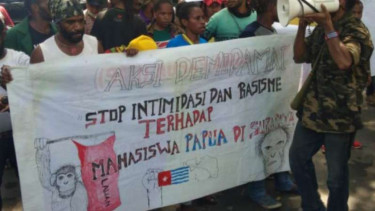 AKSI DEMO DAMAI
STOP INTIMIDASI DAN RASISME
TERHADAP
MAHASISWA PAPUA DI